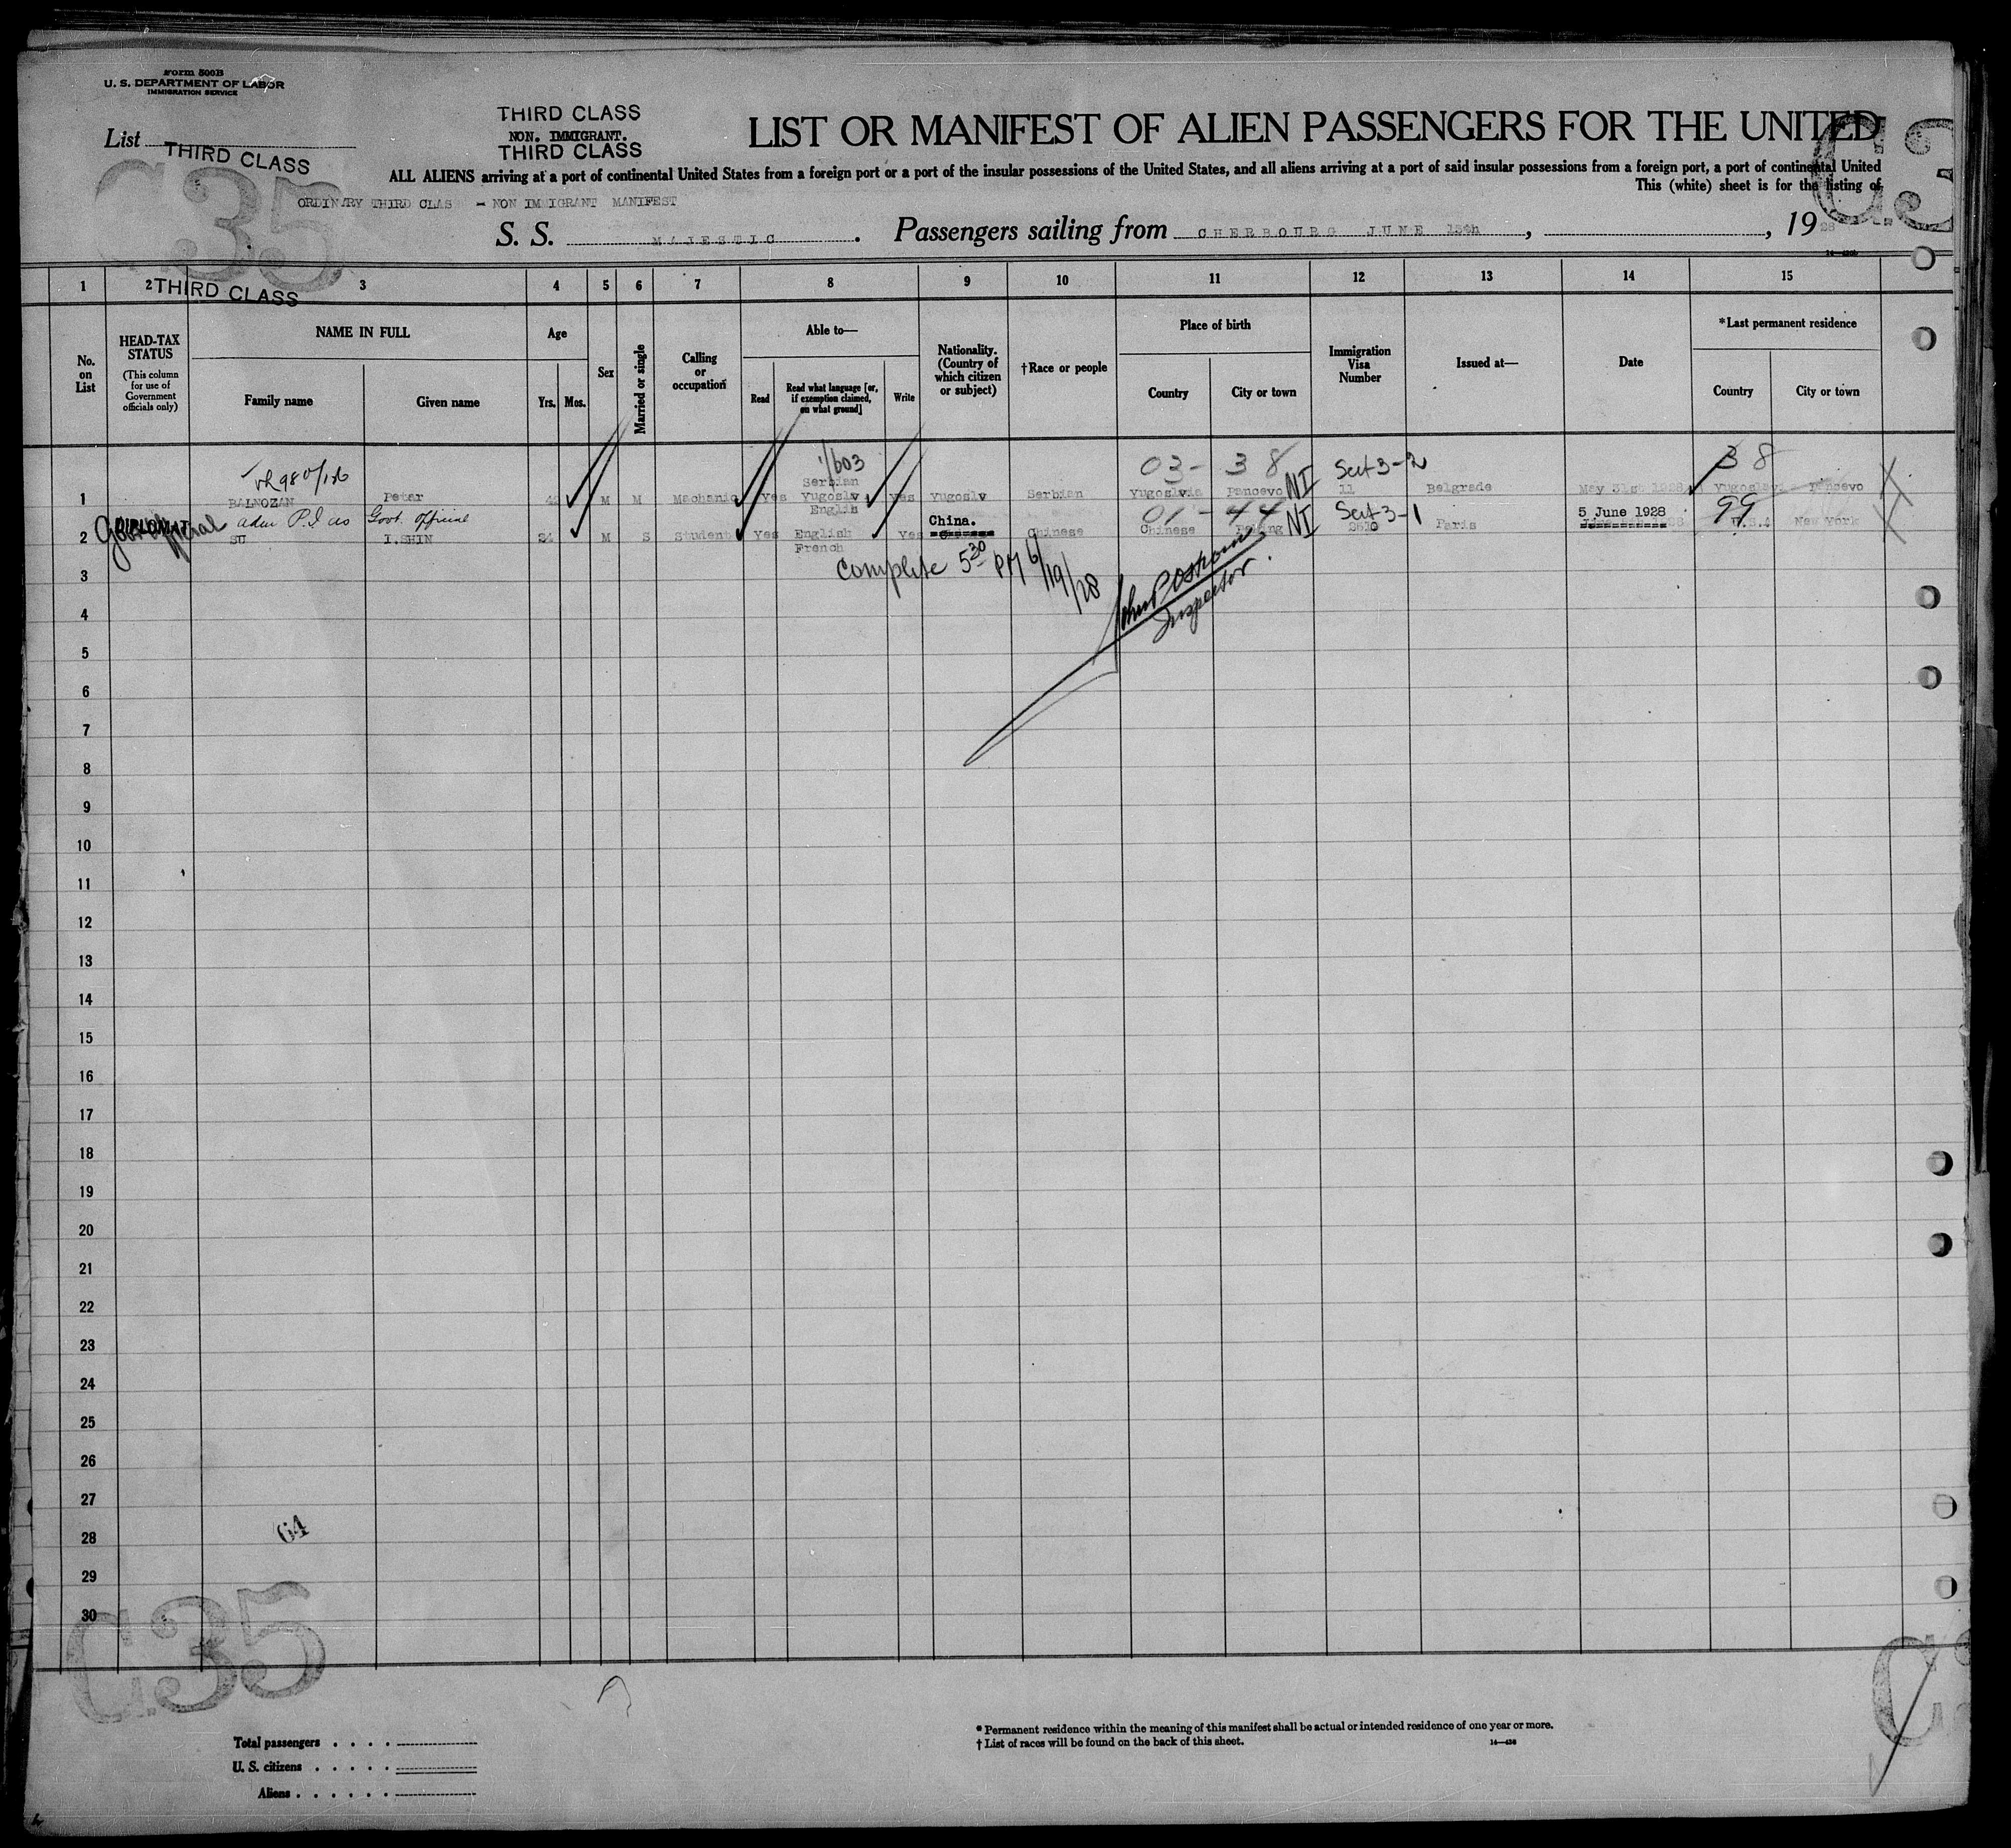 Form 500B
U. S. DEPARTMENT OF LABOR
IMMIGRATION SERVICE
List
THIRD CLASS
THIRD CLASS
NON. IMMIGRANT.
THIRD CLASS
LIST OR MANIFEST OF ALIEN PASSENGERS FOR THE UNITED
C35
ALL ALIENS arriving at a port of continental United States from a foreign port or a port of the insular possessions of the United States, and all aliens arriving at a port of said insular possessions from a foreign port, a port of continental United
This (white) sheet is for the listing of
ORDINARY THIRD CLAS - NON IMMIGRANT MANIFEST
S. S. MAJESTIC. Passengers sailing from CHERBOURG JUNE 13th, , 1928
1 2 3 4 5 6 7 8 9 10 11 12 13 14 15
THIRD CLASS
No. on List
HEAD-TAX STATUS
(This column for use of Government officials only)
NAME IN FULL
Family name
Given name
Age
Yrs.
Mos.
Sex
Married or single
Calling or occupation
Able to—
Read
Read what language [or, if exemption claimed, on what ground]
Write
Nationality. (Country of which citizen or subject)
†Race or people
Place of birth
Country
City or town
Immigration Visa Number
Issued at—
Date
*Last permanent residence
Country
City or town
1/603
03- 38 NI Sect 3-2 38
1 BALNOZAN Petar M M Mechanic Yes Serbian Yugoslv Yes Yugoslv Serbian Yugoslvia Pancevo 11 Belgrade May 31st 1928 Yugoslavi Pancevo
Govt official
adm P.I as Govt. official
01-44 NI Sect 3-1 99
2 SU I.SHIN 24 M S Student Yes English French Yes China. Chinese Chinese Peking Paris 5 June 1928 U.S.A New York
Complete 5 30 PM 6/19/28
Inspector.
3
4
5
6
7
8
9
10
11
12
13
14
15
16
17
18
19
20
21
22
23
24
25
26
27
28
29
30
64
C35
Total passengers
U. S. citizens
Aliens
* Permanent residence within the meaning of this manifest shall be actual or intended residence of one year or more.
† List of races will be found on the back of this sheet.